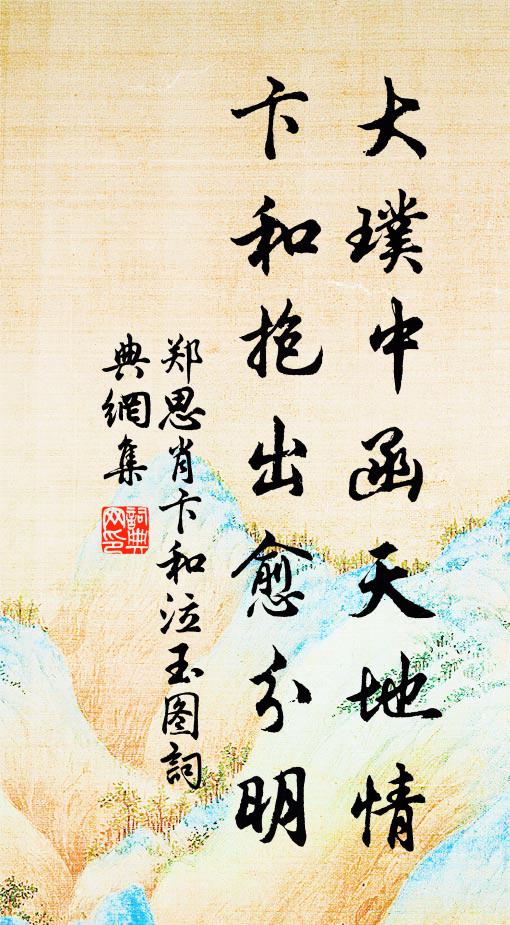 大璞中函天地情
卞和抱出愈分明
郑思肖卞和泣玉图詞
典網集
詞典
网印